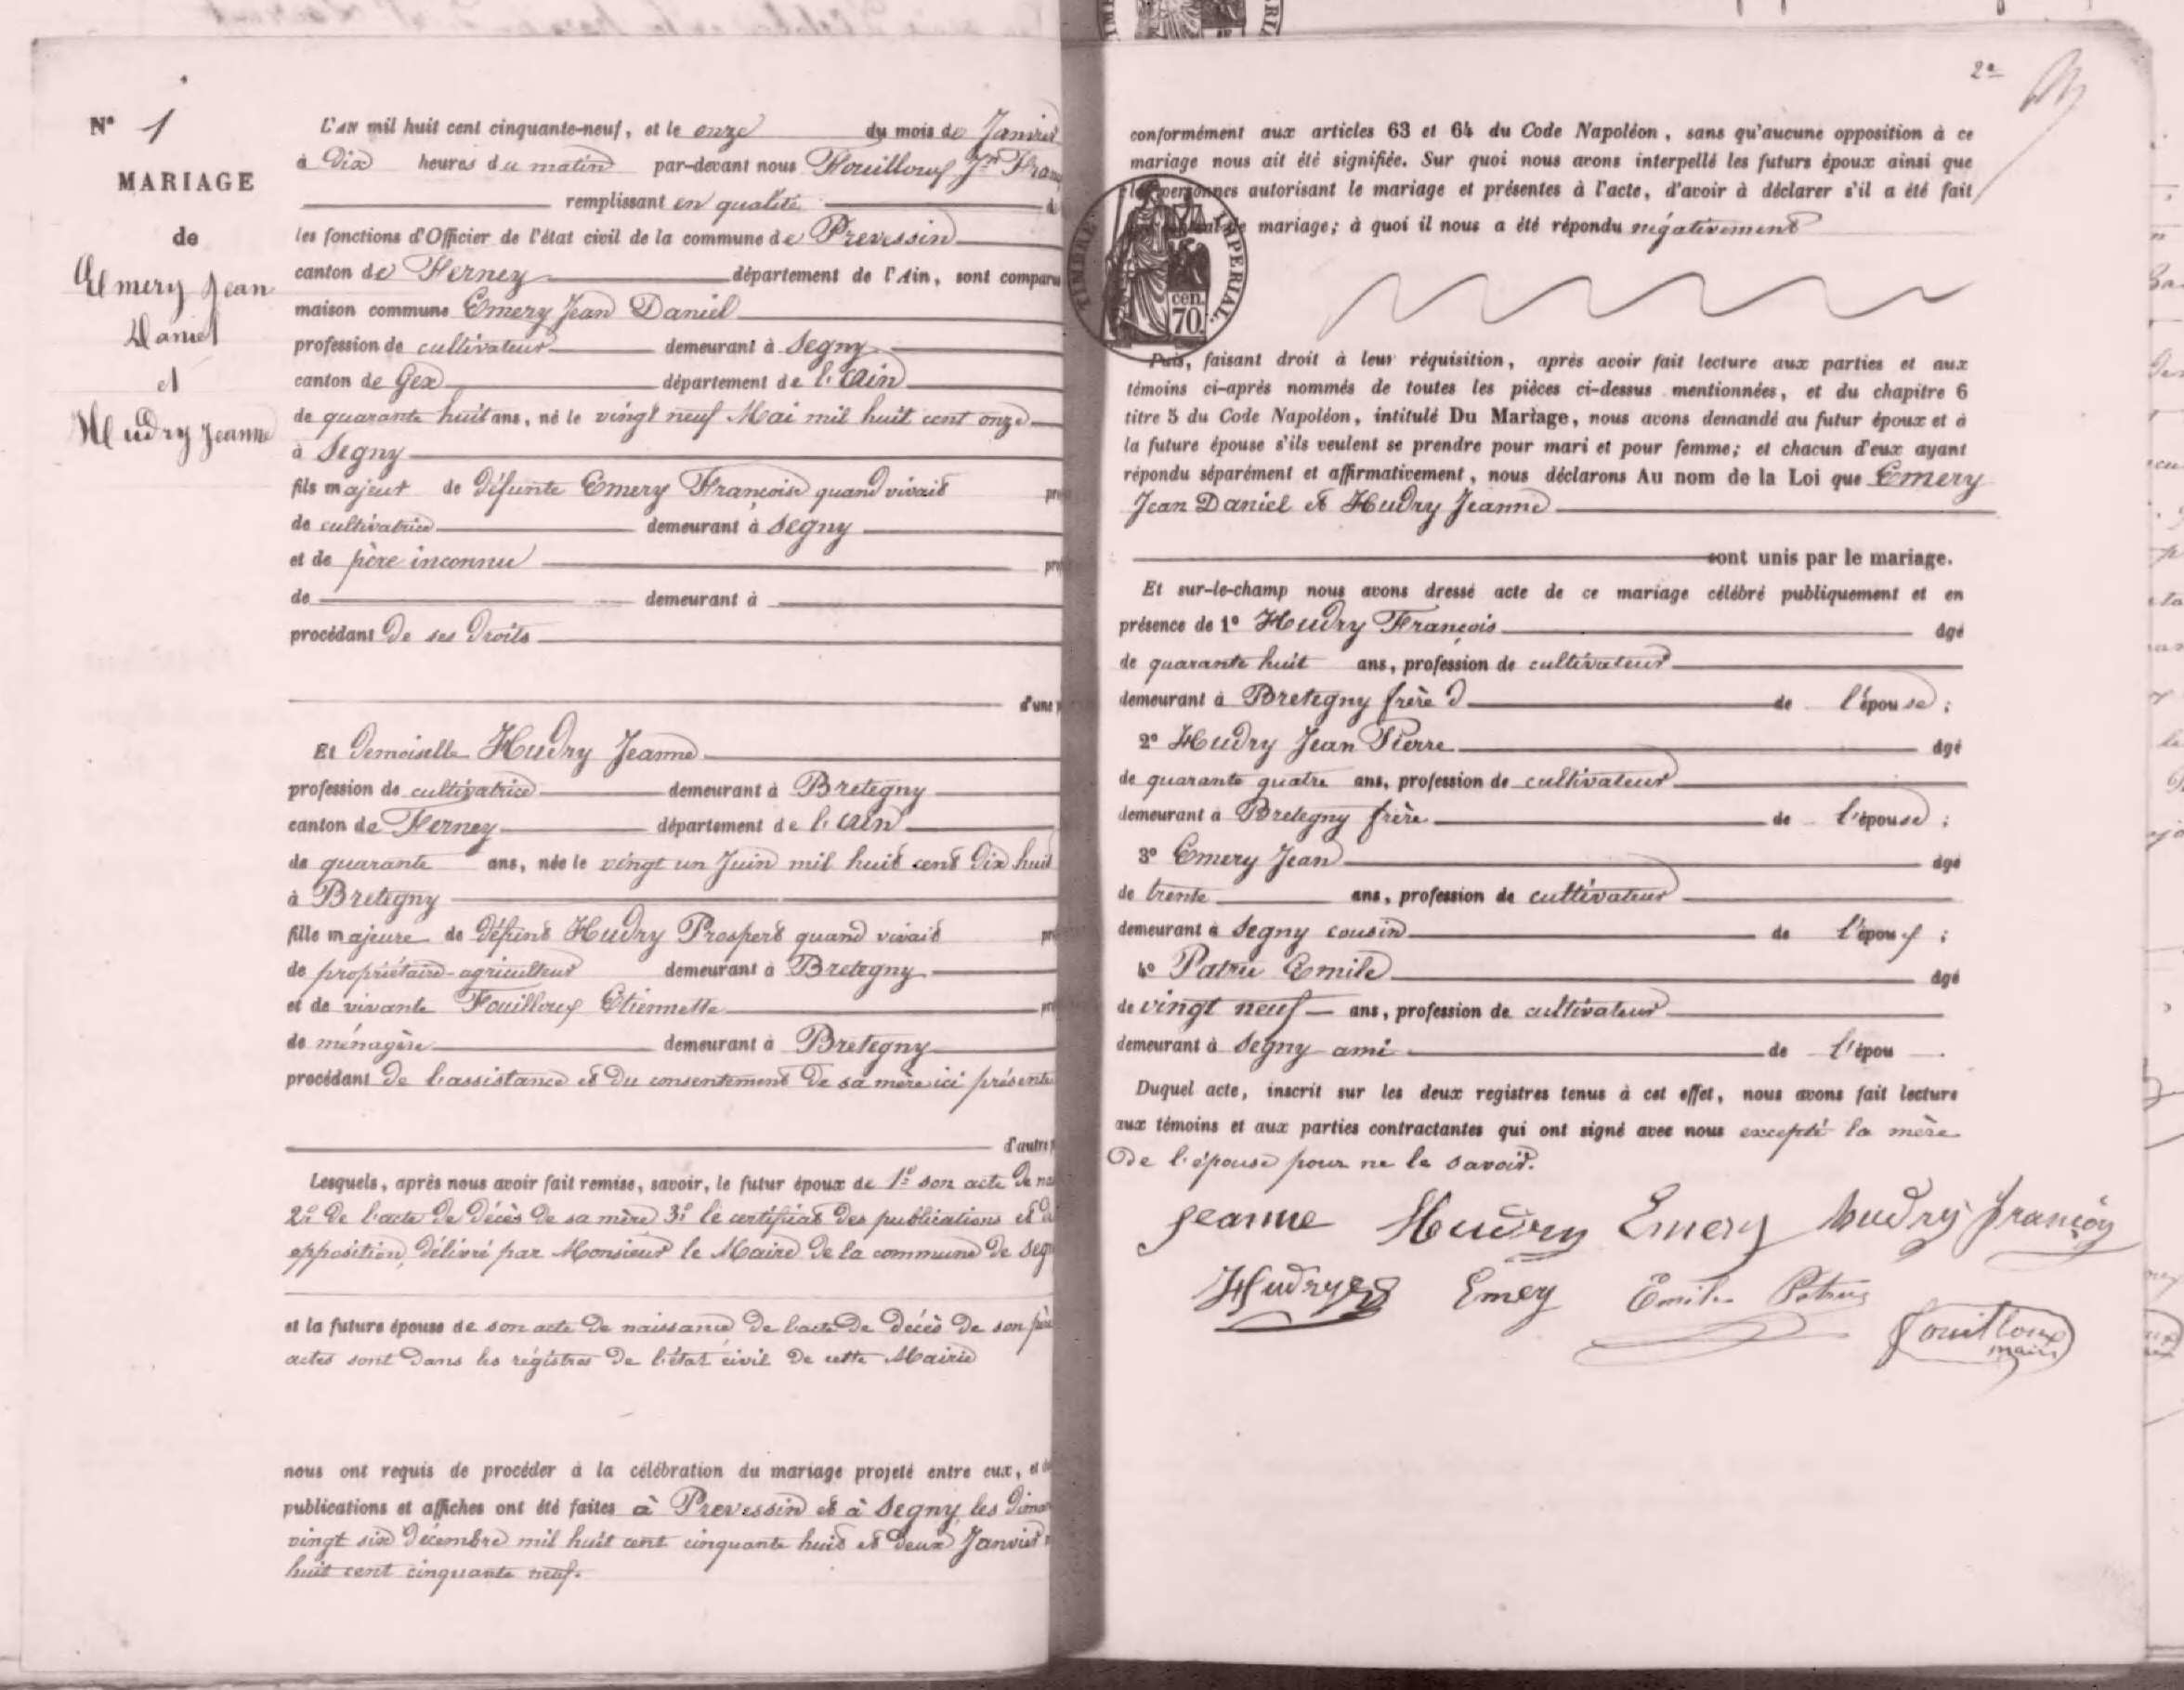 Nº 1
MARIAGE
de
Emery Jean
Daniel
et
Hudry Jeanne
L'AN mil huit cent cinquante-neuf, et le onze du mois de Janvier
à dix heures du matin par-devant nous Fouilloux Jn
remplissant en qualité
les fonctions d'Officier de l'état civil de la commune de Prevessin
canton de Ferney département de l'Ain, sont comparu
maison commune Emery Jean Daniel
profession de cultivateur demeurant à Segny
canton de Gex département de l'Ain
de quarante huit ans, né le vingt neuf Mai mil huit cent onze
à Segny
fils majeur de défunte Emery Françoise quand vivait
de cultivatrice demeurant à Segny
et de père inconnu
de demeurant à
procédant de ses droits
d'une
Et demoiselle Hudry Jeanne
profession de cultivatrice demeurant à Bretegny
canton de Ferney département de l'Ain
de quarante ans, née le vingt un Juin mil huit cent dix huit
à Bretegny
fille majeure de défunt Hudry Prospert quand vivait
de propriétaire-agriculteur demeurant à Bretegny
et de vivante Fouilloux Etiennette
de ménagère demeurant à Bretegny
procédant de l'assistance et du consentement de sa mère ici présente
d'autre
Lesquels, après nous avoir fait remise, savoir, le futur époux de 1º son acte de na
2º de l'acte de décès de sa mère 3º le certificat des publications et
opposition, délivré par Monsieur le Maire de la commune de Seg
et la future épouse de son acte de naissance de l'acte de décès de son père
actes sont dans les régistres de l'état civil de cette Mairie
nous ont requis de procéder à la célébration du mariage projeté entre eux, et
publications et affiches ont été faites à Prevessin et à Segny les diman
vingt six décembre mil huit cent cinquante huit et deux Janvier
huit cent cinquante neuf.
2e
conformément aux articles 63 et 64 du Code Napoléon, sans qu'aucune opposition à ce
mariage nous ait été signifiée. Sur quoi nous avons interpellé les futurs époux ainsi que
les personnes autorisant le mariage et présentes à l'acte, d'avoir à déclarer s'il a été fait
de mariage; à quoi il nous a été répondu négativement
TIMBRE IMPERIAL.
cen.
70
Puis, faisant droit à leur réquisition, après avoir fait lecture aux parties et aux
témoins ci-après nommés de toutes les pièces ci-dessus mentionnées, et du chapitre 6
titre 5 du Code Napoléon, intitulé Du Mariage, nous avons demandé au futur époux et à
la future épouse s'ils veulent se prendre pour mari et pour femme; et chacun d'eux ayant
répondu séparément et affirmativement, nous déclarons Au nom de la Loi que Emery
Jean Daniel et Hudry Jeanne
sont unis par le mariage.
Et sur-le-champ nous avons dressé acte de ce mariage célébré publiquement et en
présence de 1º Hudry François âgé
de quarante huit ans, profession de cultivateur
demeurant à Bretegny frère d de l'épouse;
2º Hudry Jean Pierre âgé
de quarante quatre ans, profession de cultivateur
demeurant à Bretegny frère de l'épouse;
3º Emery Jean âgé
de trente ans, profession de cultivateur
demeurant à Segny cousin de l'époux;
4º Patru Emile âgé
de vingt neuf ans, profession de cultivateur
demeurant à Segny ami de l'épou
Duquel acte, inscrit sur les deux registres tenus à cet effet, nous avons fait lecture
aux témoins et aux parties contractantes qui ont signé avec nous excepté la mère
de l'épouse pour ne le savoir.
jeanne Hudry Emery hudry françois
Hudry Emery Emile Patru
Fouilloux
maire